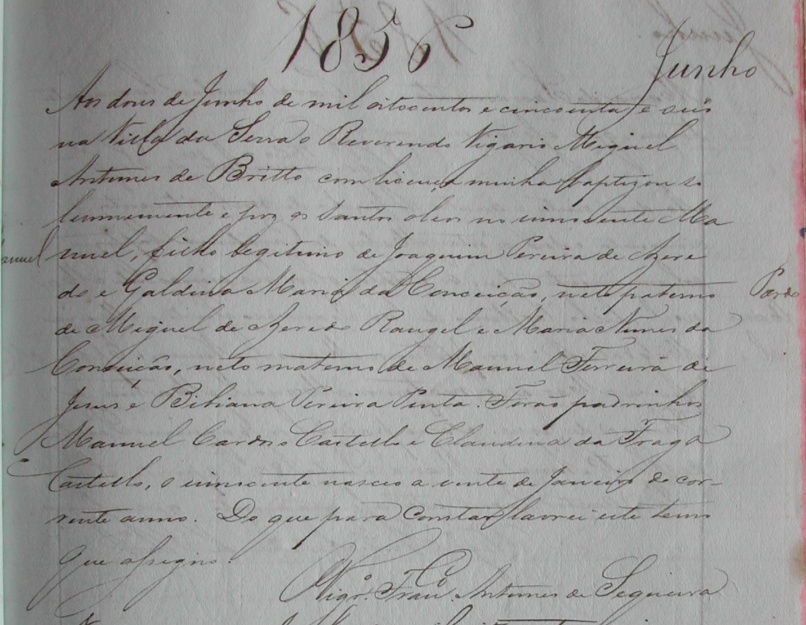 1856
Junho
Aos dous de Junho de mil oitocentos e cincoenta e seis
na Villa da Serra o Reverendo Vigario Miguel
Antunes de Britto com licença minha baptizou so
lemnemente e poz os santos oleos no innocente Ma
nuel, filho legitimo de Joaquim Pereira de Azere
do e Galdina Maria da Conceição, neto paterno
Pardo
de Miguel de Azeredo Rangel e Maria Nunes da
Conceição, neto materno de Manuel Ferreira de
Jesus e Bibiana Pereira Pinta. Forão padrinhos
Manuel Cardoso Castello e Claudina da Fraga
Castello, o innocente nasceo a vinte de Janeiro do cor-
rente anno. Do que para constar lavrei este termo
que assigno.
Vigrº. Francº. Antunes de Sequeira